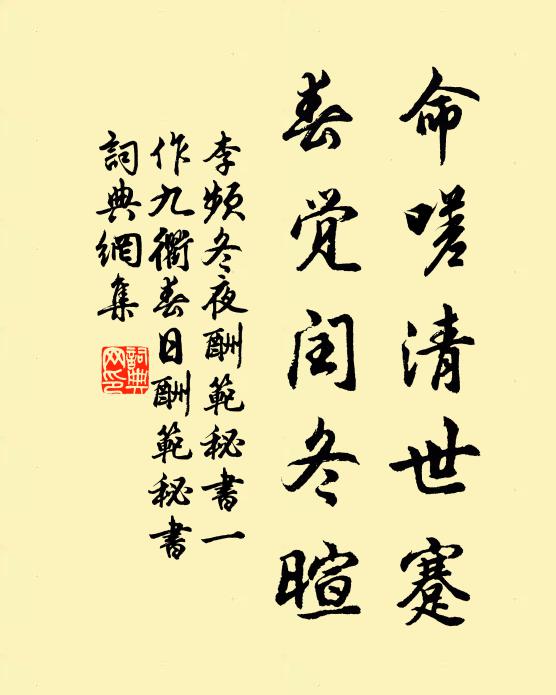 命嗟清世蹇
春覺闰冬暄
李频冬夜酬範秘書一
作九衢春日酬範秘書
詞典網集
詞典
网印